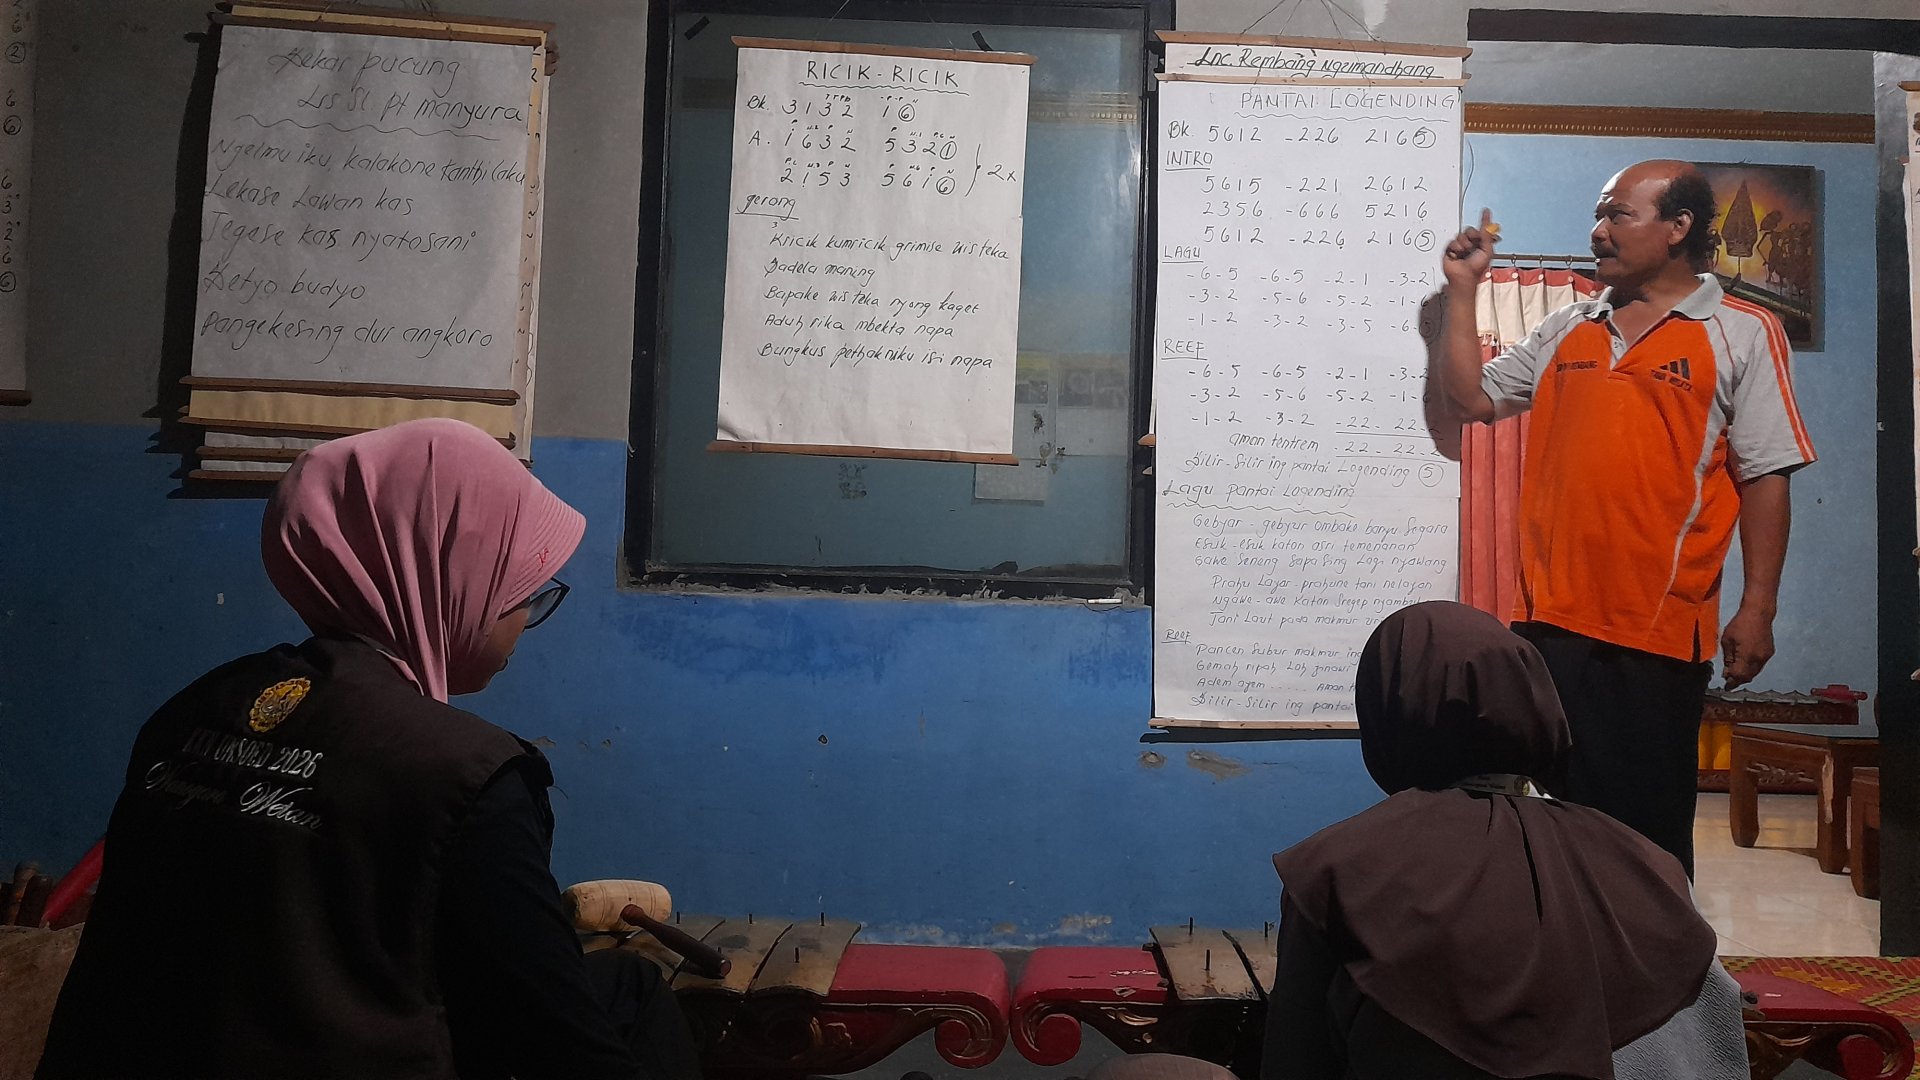 Sekar pucung
Lrs Sl. pt manyura
Ngelmu iku, kalakone kanthi laku
Lekase Lawan kas
Tegese kas nyatosani
Setyo budyo
Pangekesing dur angkoro
RICIK-RICIK
Bk. 3 1 3 2 1 6
A. 1 6 3 2 5 3 2 1
2 1 5 3 5 6 1 6 } 2x
gerong
Kricik kumricik grimise wis teka
Sadela maning
Bapake wis teka nyong kaget
Aduh rika mbekta napa
Bungkus pethakniku isi napa
Lnc. Rembang Ngumandhang
PANTAI LOGENDING
Bk. 5612 -226 2165
INTRO
5615 -221 2612
2356 -666 5216
5612 -226 2165
LAGU
-6-5 -6-5 -2-1 -3-2
-3-2 -5-6 -5-2 -1-6
-1-2 -3-2 -3-5 -6-5
REEF
-6-5 -6-5 -2-1 -3-2
-3-2 -5-6 -5-2 -1-6
-1-2 -3-2 -22- 22-2
aman tentrem -22-22-2
Silir-Silir ing pantai Logending 5
Lagu pantai Logending
Gebyar-gebyur ombake banyu Segara
Esuk-esuk katon asri temenanan
Gawe Seneng Sapa Sing Lagi nyawang
Prahu Layar-prahune tani nelayan
Ngawe-awe Katon Sregep
Tani Laut pada makmur
Reef
Pancen Subur makmur
Gemah ripah Loh jinawi
Adem ayem ..... Aman
Silir-Silir ing pantai
KKN UNSOED 2026
Wetan